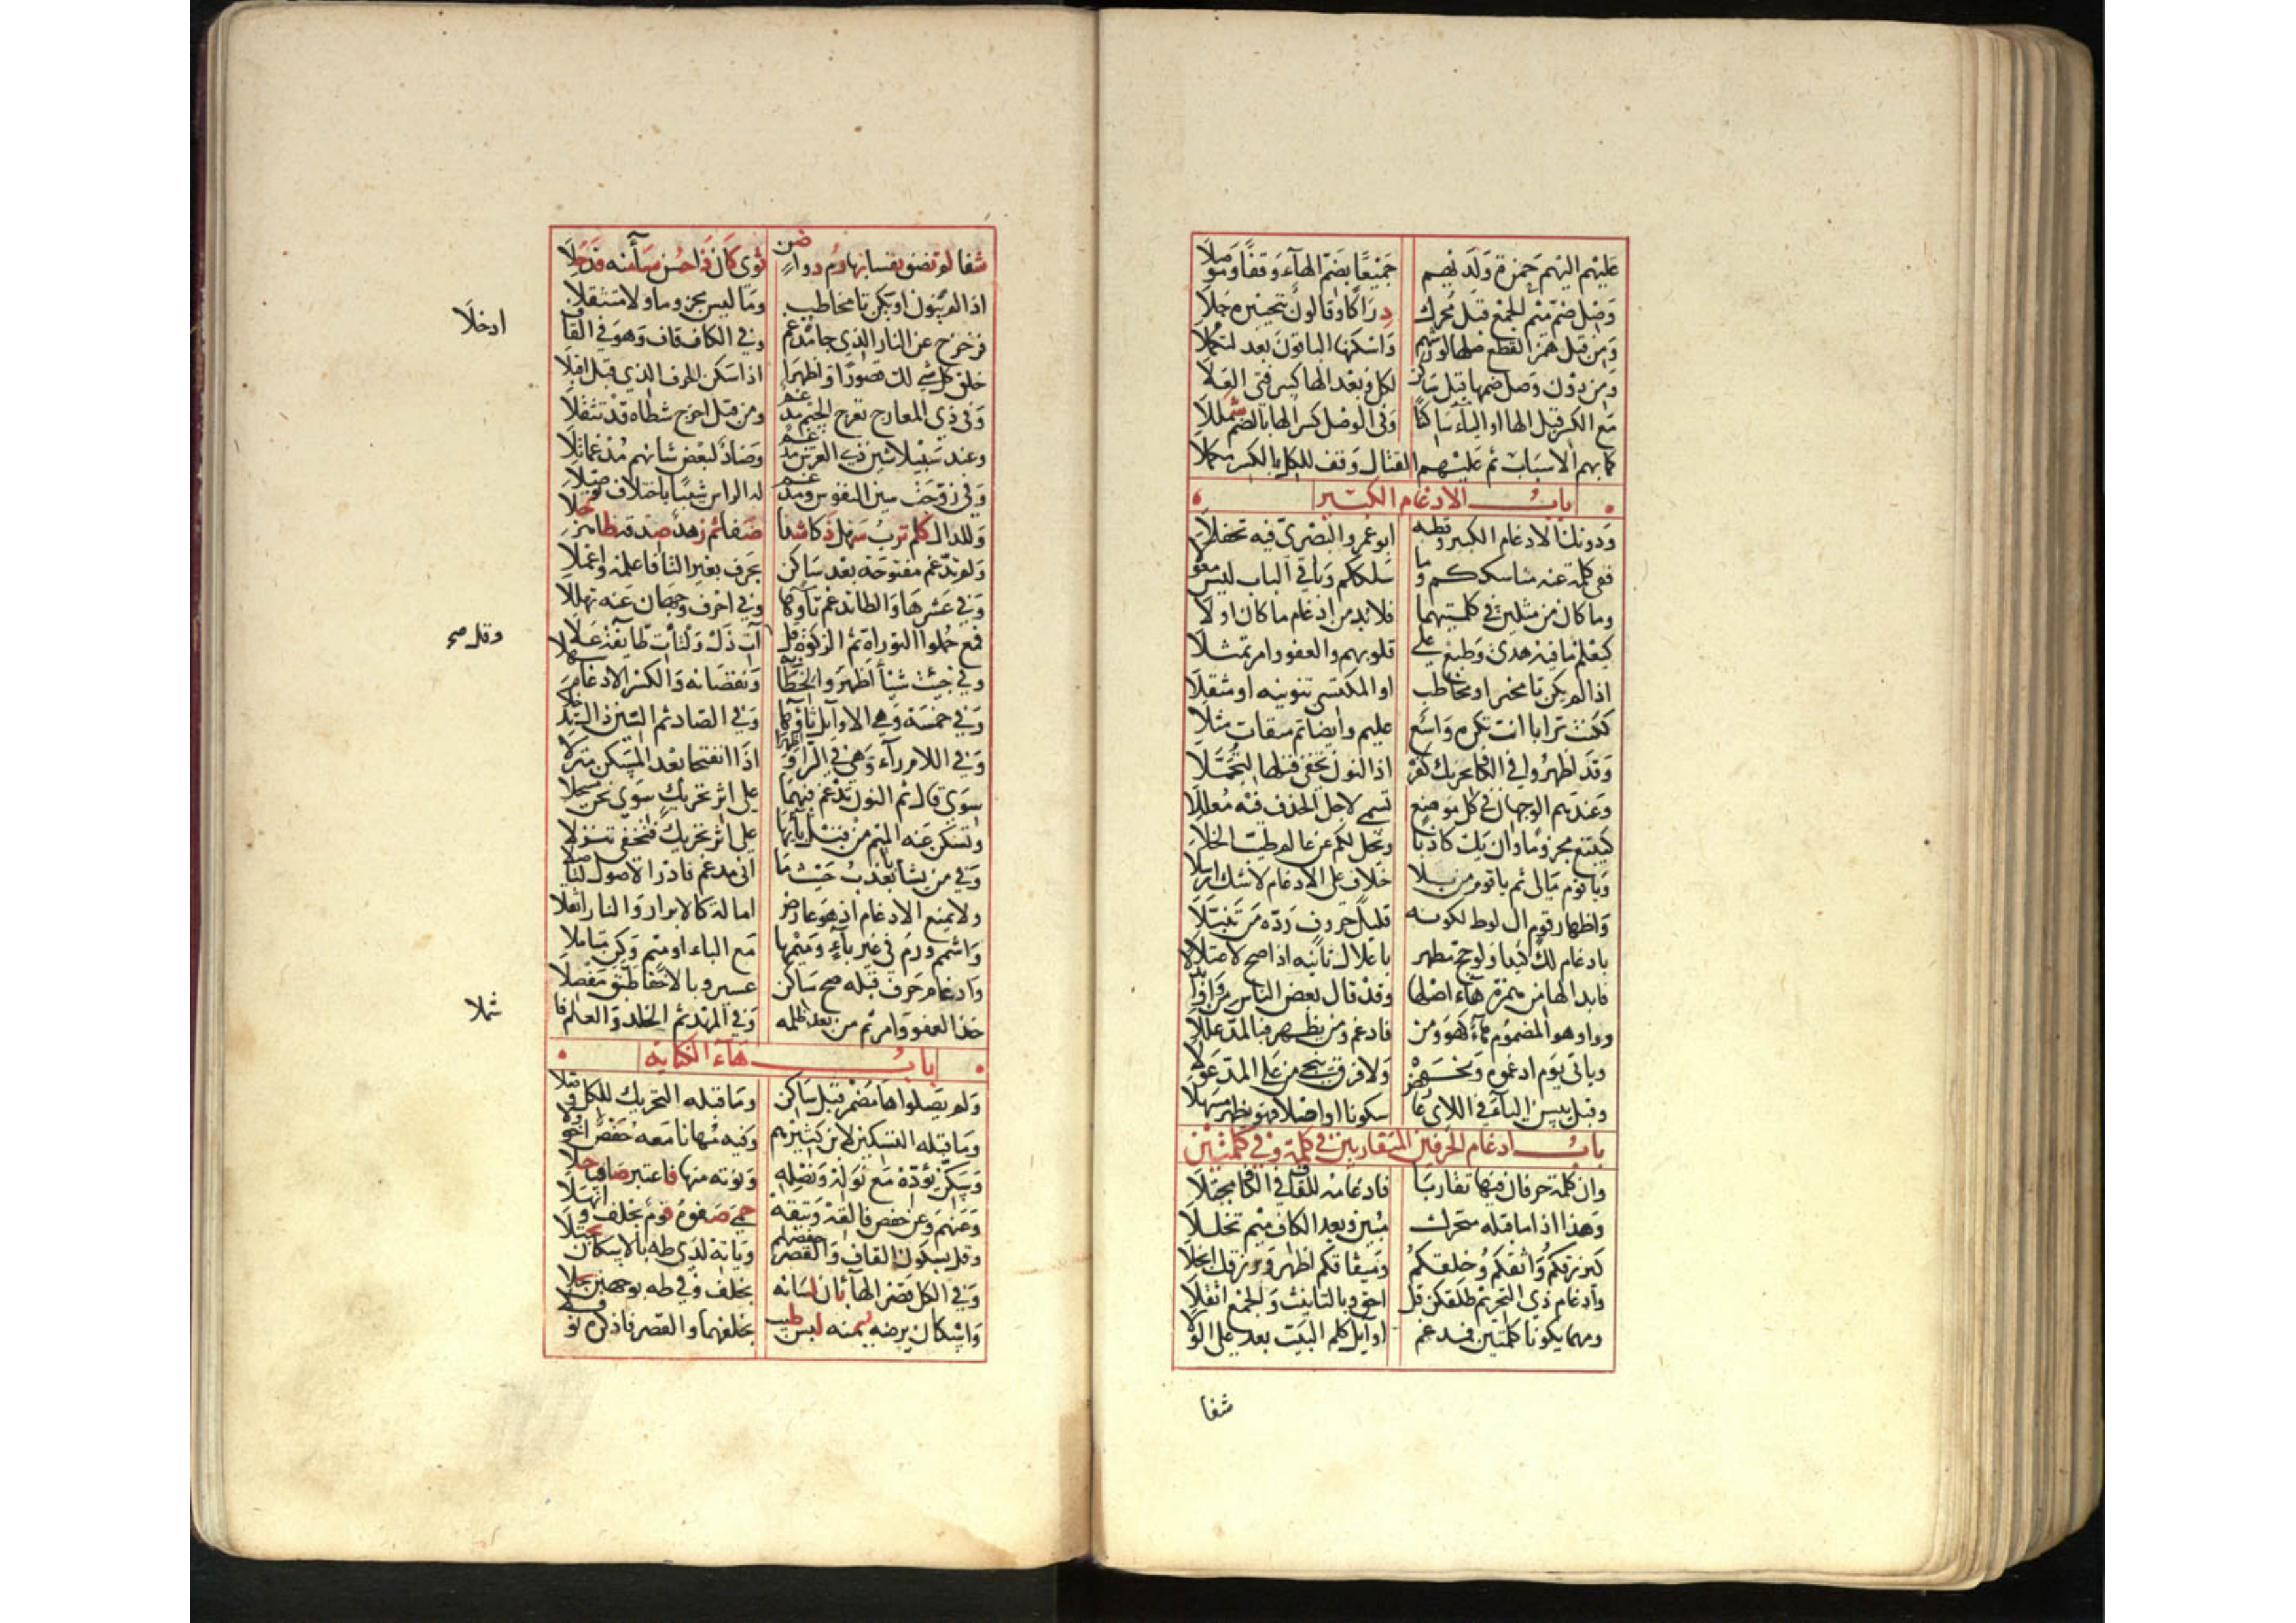 عليهم اليهم حمزة ولديهم جميعا بضم الهاء وقفا وموصلا
وصل ضم ميم الجمع قبل محرك دراكا وقالون بتخييره جلا
ومن قبل همز القطع صلها لورشهم واسكنها الباقون بعد لتكملا
ومن دون وصل ضمها قبل ساكن لكل وبعد الهاء كسر فتى العلا
مع الكسر قبل الها او الياء ساكنا وفي الوصل كسر الها بالضم شمللا
كما بهم الاسباب ثم عليهم القتال وقف للكل بالكسر مكملا
باب الادغام الكبير
ودونك الادغام الكبير وقطبه ابو عمرو البصري فيه تحفلا
ففي كلمة عنه مناسككم وما سلككم وباقي الباب ليس معولا
وما كان من مثلين في كلمتيهما فلا بد من ادغام ما كان اولا
كيعلم ما فيه هدى وطبع على قلوبهم والعفو وامر تمثلا
اذا لم يكن تا مخبر او مخاطب او المكتسي تنوينه او مثقلا
ككنت ترابا انت تكره واسع عليم وايضا تم ميقات مثلا
وقد اظهروا في الكاف يحزنك كفره اذ النون تخفى قبلها لتجملا
وعندهم الوجهان في كل موضع تسمى لاجل الحذف فيه معللا
كيبتغ مجزوما وان يك كاذبا ويخل لكم عن عالم طيب الخلا
ويا قوم مالي ثم يا قوم من بلا خلاف على الادغام لا شك ارسلا
واظهار قوم ال لوط لكونه قليل حروف رده من تنبلا
بادغام لك كيدا ولو حج مظهر باعلال ثانيه اذا صح لاعتلا
فابداله من همزة هاء اصلها وقد قال بعض الناس من واو ابدلا
وواو هو المضموم هاء كهو ومن فادغم ومن يظهر فبالمد عللا
وياتي يوم ادغموه ونحوه ولا فرق ينجي من على المد عولا
وقبل يئسن الياء في اللاي عارض سكونا او اصلا فهو يظهر مسهلا
باب ادغام الحرفين المتقاربين في كلمة وفي كلمتين
وان كلمة حرفان فيها تقاربا فادغامه للقاف في الكاف مجتلا
وهذا اذا ما قبله متحرك مبين وبعد الكاف ميم تخللا
كيرزقكم واثقكم وخلقكم وميثاقكم اظهر ونرزقك انجلا
وادغام ذي التحريم طلقكن قل احق وبالتانيث والجمع اثقلا
ومهما يكونا كلمتين فمدغم اوايل كلم البيت بعد على الولا
شفا
شفا لم تضق نفسا بها رم دوا ضن ثوى كان ذا حسن سأى منه قد جلا
اذا لم ينون او يكن تا مخاطب وما ليس مجزوما ولا متثقلا
فزحزح عن النار الذي حاه مدغم وفي الكاف قاف وهو في القاف
ادخلا
خلق كل شي لك قصورا واظهرا اذا سكن الحرف الذي قبل اقبلا
وفي ذي المعارج تعرج الجيم مدغم ومن قبل اخرج شطاه قد تثقلا
وعند سبيلا شين ذي العرش مدغم وضاد لبعض شانهم مدغما تلا
وفي زوجت سين النفوس ومدغم له الراس شيبا باختلاف توصلا
وللدال كلم ترب سهل ذكا شذا ضفا ثم زهد صدقه ظاهر جلا
ولم تدغم مفتوحة بعد ساكن بحرف بغير التا فاعلمه واعملا
وفي عشرها والطا تدغم تاؤها وفي احرف وجهان عنه تهللا
فمع حملوا التوراة ثم الزكوة قل وقل آت ذا ل ولتات طايفة علا
وقل صح
وفي جئت شيا اظهروا لخطابه ونقصانه والكسر الادغام سهلا
وفي خمسة وهي الاوايل ثاؤها وفي الصاد ثم السين ذال تدخلا
وفي اللام راء وهي في الرا واظهرا اذا انفتحا بعد المسكن منزلا
سوى قال ثم النون تدغم فيهما على اثر تحريك سوى نحن مسجلا
وتسكن عنه الميم من قبل بائها على اثر تحريك فتخفى تنزلا
وفي من يشا با يعذب حيث ما اتى مدغم فادر الاصول لتاصلا
ولا يمنع الادغام اذ هو عارض امالة كالابرار والنار اثقلا
واشمم ورم في غير باء وميمها مع الباء او ميم وكن متاملا
وادغام حرف قبله صح ساكن عسير وبالاخفا طبق مفصلا
خذ العفو وامر ثم من بعد ظلمه وفي المهد ثم الخلد والعلم فا
شملا
باب هاء الكناية
ولم يصلوا ها مضمر قبل ساكن وما قبله التحريك للكل وصلا
وما قبله التسكين لابن كثيرهم وفيه مهانا معه حفص اخو ولا
وسكن يؤده مع نوله ونصله ونوته منها فاعتبر صافيا حلا
وعنهم وعن حفص فالقه ويتقه حمى صفوه قوم بخلف وانهلا
وقل بسكون القاف والقصر حفصهم وياته لدى طه بالاسكان يجتلا
وفي الكل قصر الهاء بان لسانه بخلف وفي طه بوجهين بجلا
واسكان يرضه يمنه لبس طيب بخلفهما والقصر فاذكره نوفلا